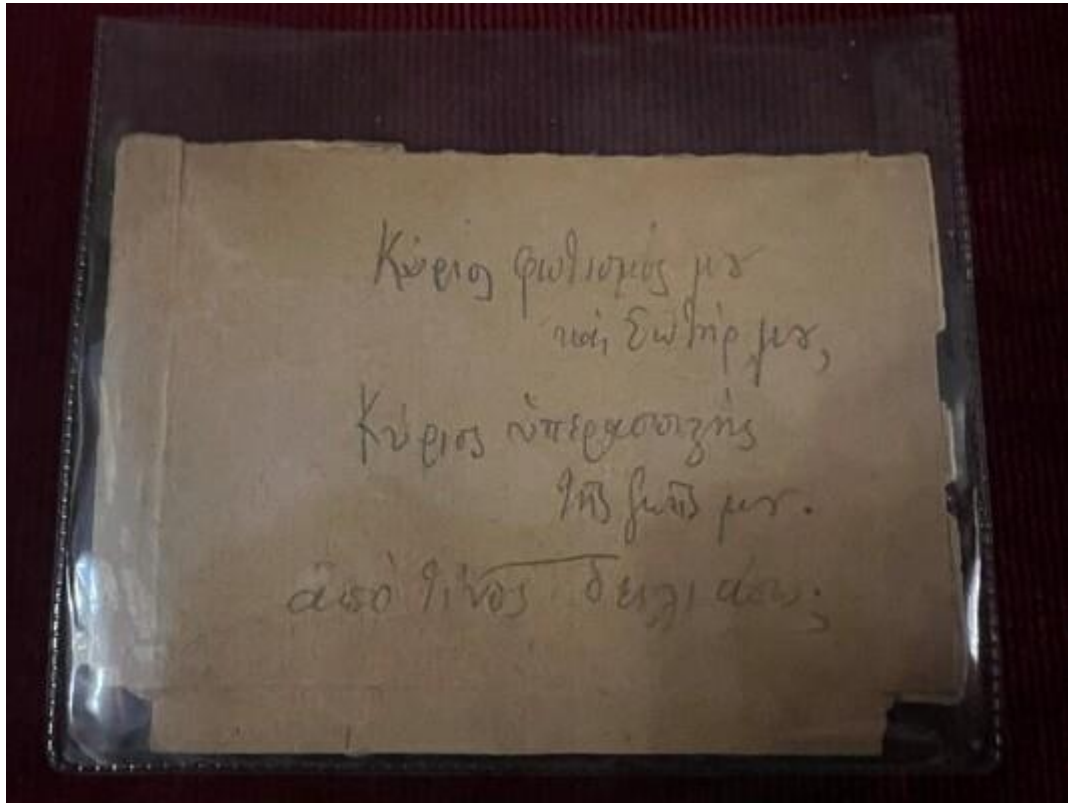 Κύριος φωτισμός μȣ
καὶ Σωτήρ μȣ,
Κύριος ὑπερασπιστής
τῆς ζωῆς μȣ.
ἀπό τίνος δειλιάσω;